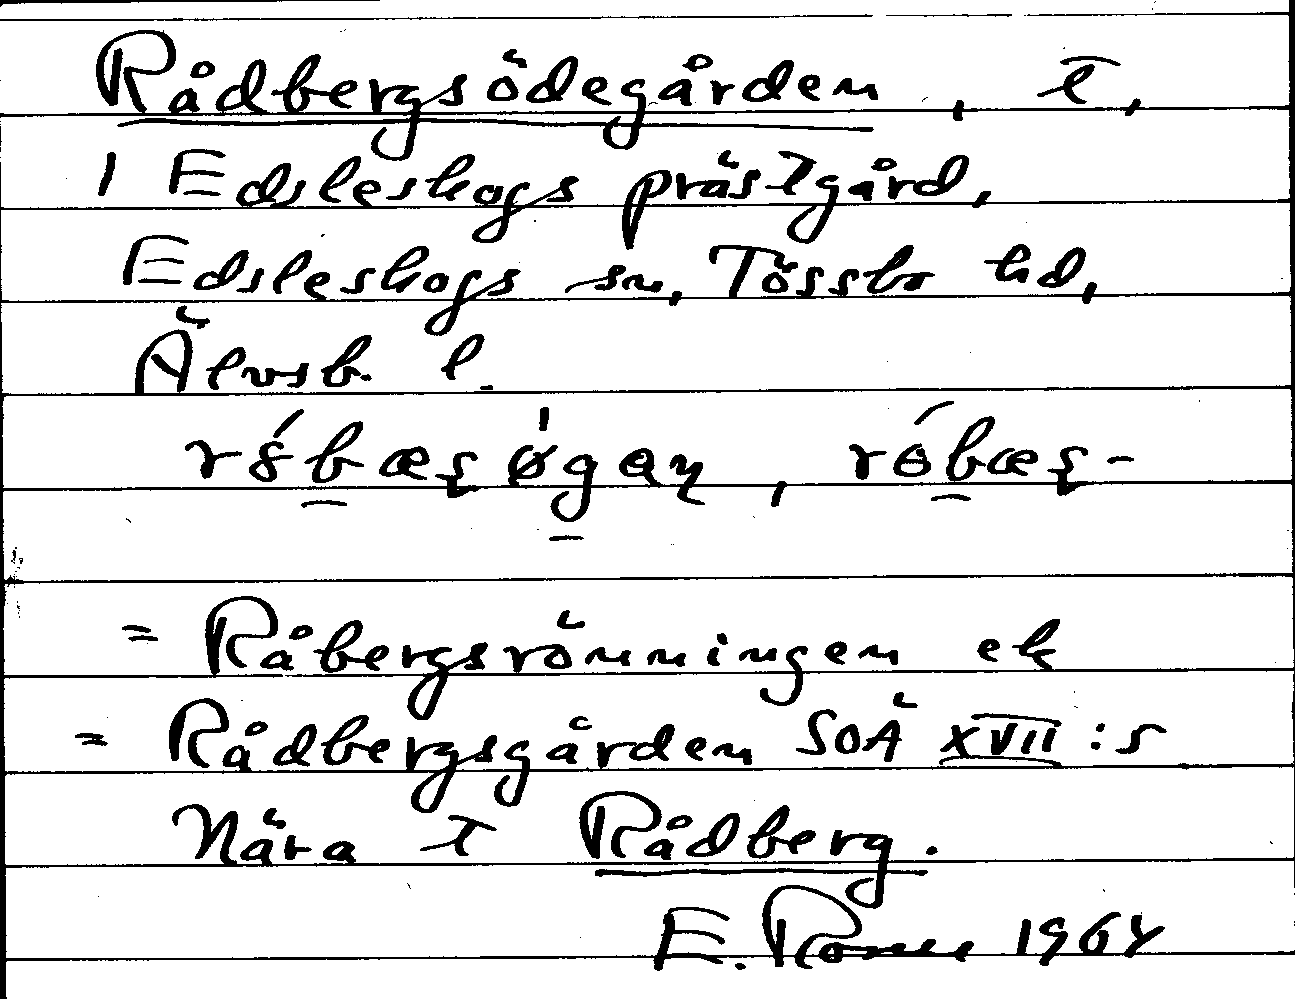 Rådbergsödegården, t,
i Edsleskogs prästgård,
Edsleskogs sn, Tössbo hd,
Älvsb. l.
= Råbergsrönningen ek
= Rådbergsgården SOÄ XVII:5
Nära t Rådberg.
E. 1964